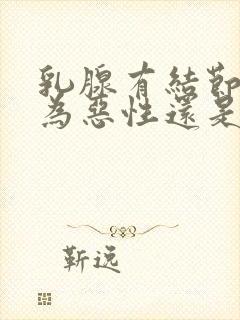 乳腺有結節
為惡性還是
靳远